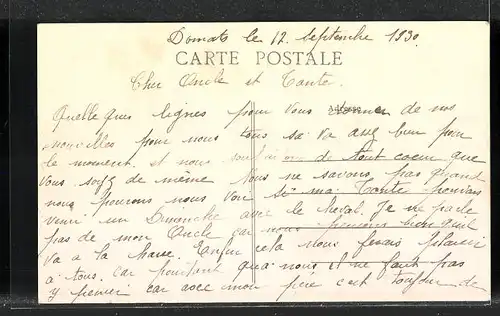 Domats le 12 Septembre 1930
CARTE POSTALE
Cher Oncle et Tante.
Quelques lignes pour vous donner de nos
nouvelles pour nous tous sa va assez bien pour
le moment. et nous de tout coeur que
vous soyez de même Nous ne savons pas quand
nous pourons nous voir si ma Tante pouvais
venir un Dimanche avec le cheval. Je ne parle
pas de mon Oncle car nous bien quil
va a la chasse. Enfin cela nous ferais plaisir
a tous. car pourtant qua nous il ne faut pas
y penser car avec mon père c'est toujours de